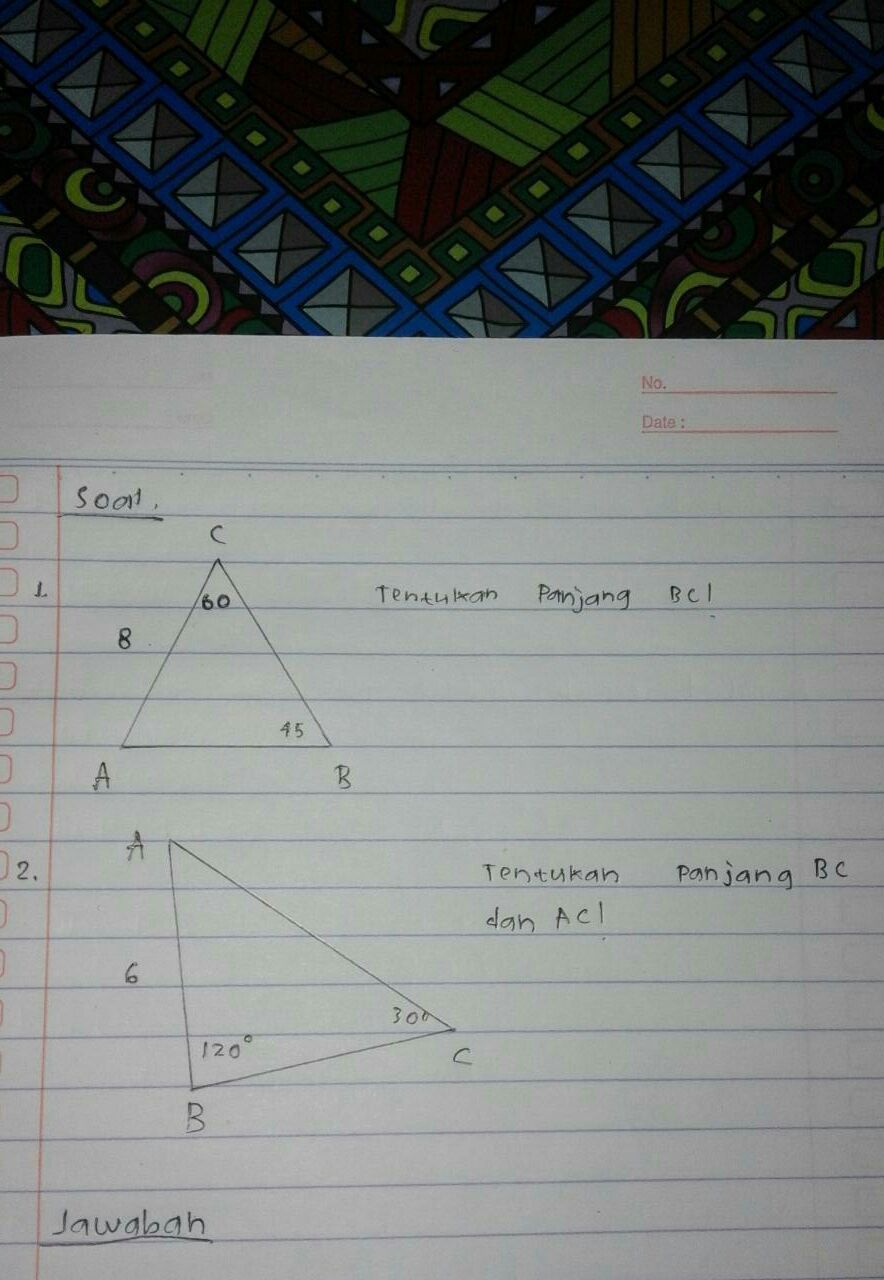 No.
Date :
Soal.
C
1.
60
Tentukan Panjang BC!
8
45
A
B
A
2.
Tentukan Panjang BC
dan AC!
6
30°
120°
C
B
Jawaban